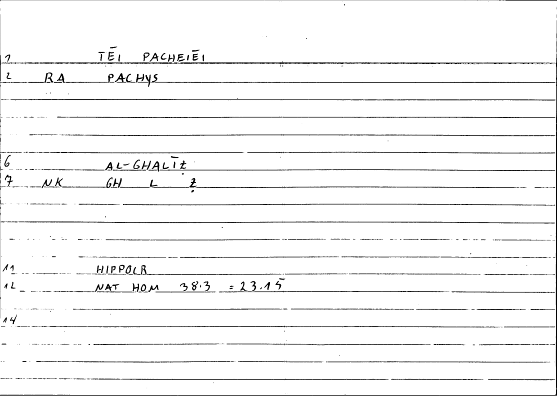 1 TĒI PACHEIĒI
2 RA PACHYS
6 AL-GHALĪẒ
7 NK GH L Ẓ
11 HIPPOCR
12 NAT HOM 38.3 = 23.15
14